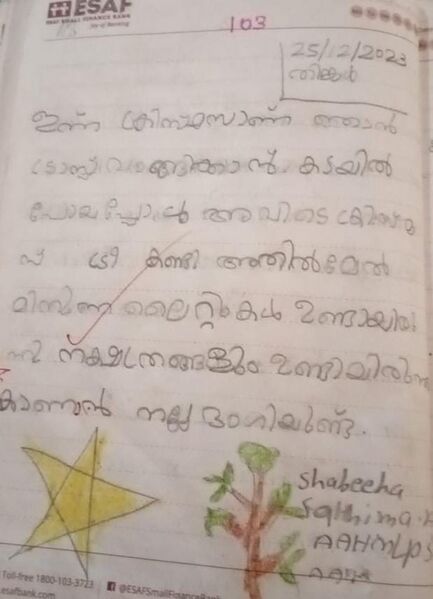 ESAF
SMALL FINANCE BANK
Joy of Banking
103
25/12/2023
തിങ്കൾ
ഇന്ന് ക്രിസ്മസാണ് ഞാൻ
വാങ്ങിക്കാൻ. കടയിൽ
പോയപ്പോൾ അവിടെ
ട്രീ കണ്ടു അതിൽമേൽ
മിന്നുന്ന ലൈറ്റുകൾ ഉണ്ടായിരു
ന്നു നക്ഷത്രങ്ങളും ഉണ്ടായിരുന്നു
കാണാൻ നല്ല ഭംഗിയുണ്ട്.
Shabeeha
AAHMLPS
Toll-free 1800-103-3723
@ESAFSmallFinanceBank
esafbank.com